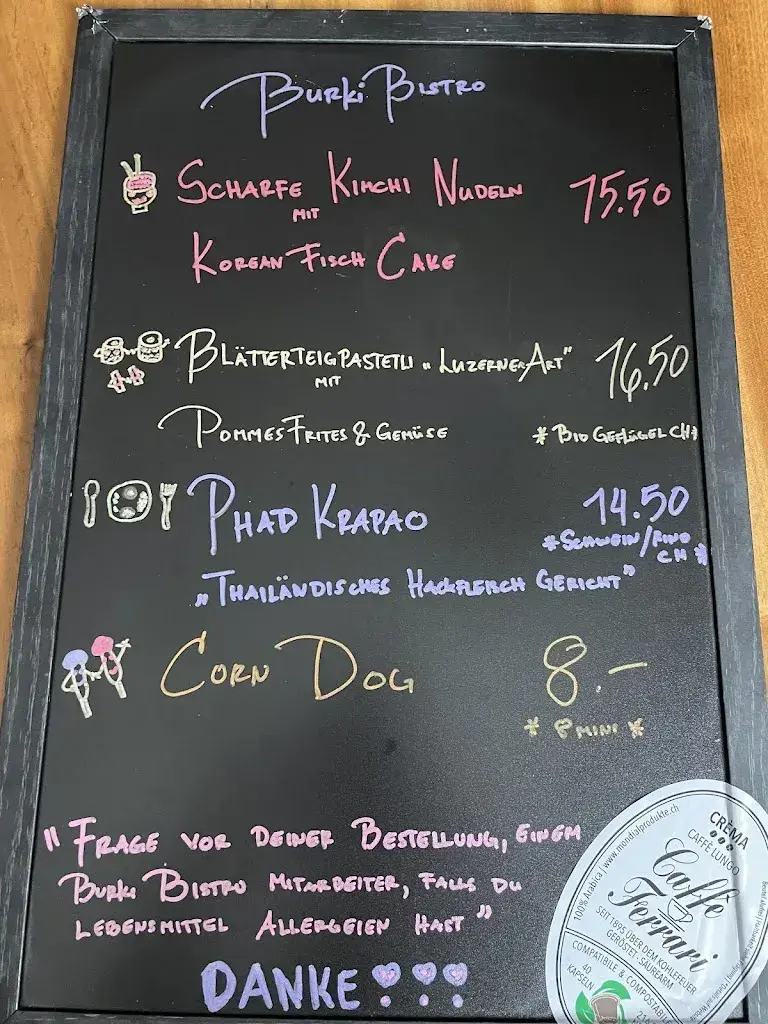 Burki Bistro
Scharfe Kimchi Nudeln 15.50
mit
Korean Fisch Cake
Blätterteigpastetli „LuzernerArt" 16.50
mit
Pommes Frites & Gemüse *Bio Geflügel CH*
Phad Krapao 14.50
*Schwein/Rind
CH*
„Thailändisches Hackfleisch Gericht"
Corn Dog 8.-
* 8 mini *
"Frage vor deiner Bestellung, einem
Burki Bistro Mitarbeiter, falls du
Lebensmittel Allergeien hast"
DANKE!!!
CRÈMA
CAFFÈ LUNGO
100% Arabica | www.mondialprodukte.ch
Caffè
Ferrari
SEIT 1895 ÜBER DEM KOHLEFEUER
GERÖSTET - SÄUREARM
COMPATIBILE & COMPOSTABILE
40
KAPSELN